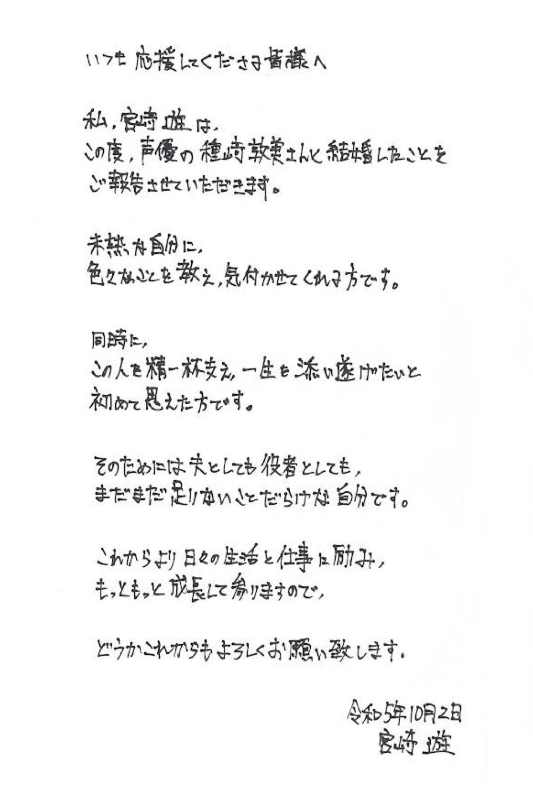 いつも応援してくださる皆様へ
私、宮崎遊は、
この度、声優の種﨑敦美さんと結婚したことを
ご報告させていただきます。
未熟な自分に、
色々なことを教え、気付かせてくれる方です。
同時に、
この人を精一杯支え、一生を添い遂げたいと
初めて思えた方です。
そのためには夫としても役者としても、
まだまだ足りないことだらけな自分です。
これからより日々の生活と仕事に励み、
もっともっと成長して参りますので、
どうかこれからもよろしくお願い致します。
令和5年10月2日
宮崎遊